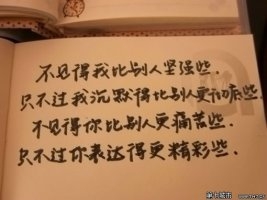 不见得我比别人坚强些.
只不过我沉默得比别人更彻底些.
不见得你比别人更痛苦些.
只不过你表达得更精彩些.